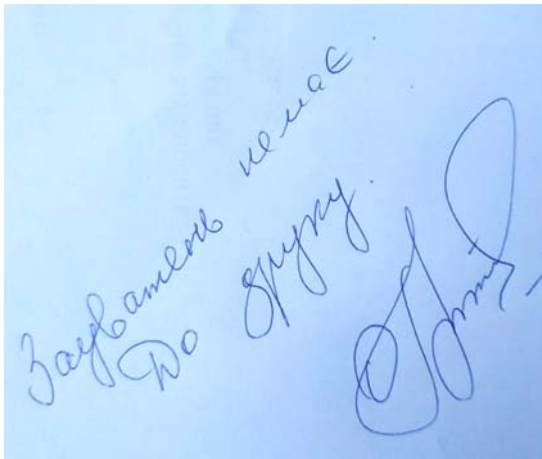 Зауважень немає.
До друку.